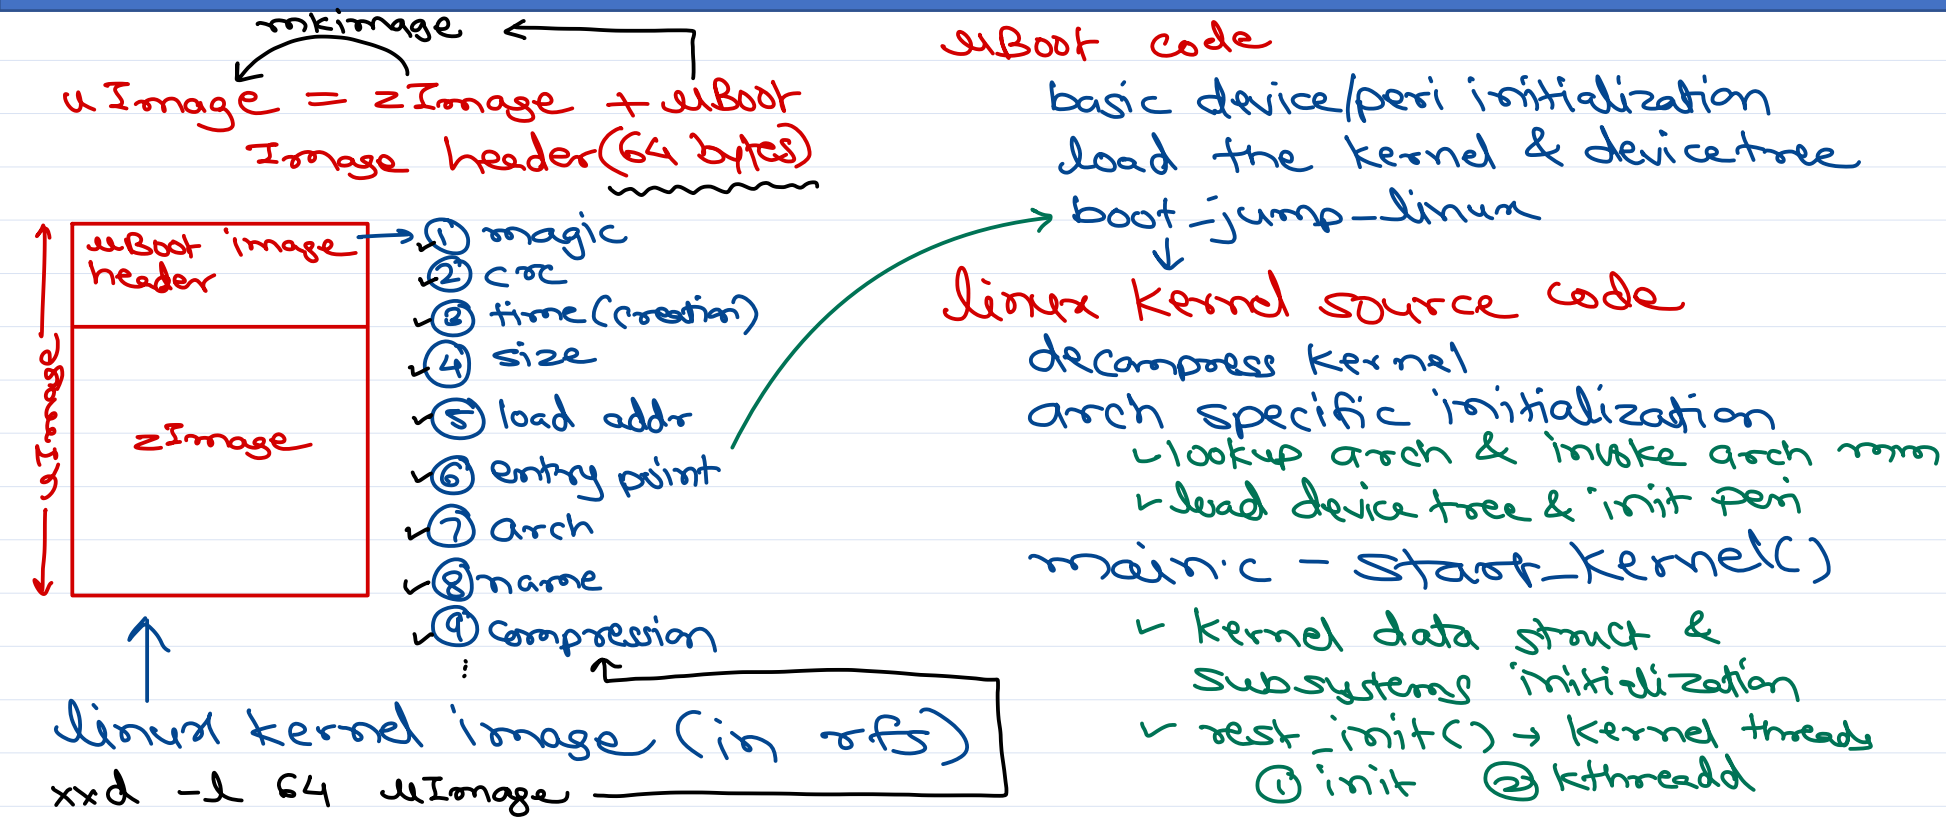 mkimage
uImage = zImage + uBoot
Image header (64 bytes)
uBoot image
header
zImage
uImage
① magic
② crc
③ time (creation)
④ size
⑤ load addr
⑥ entry point
⑦ arch
⑧ name
⑨ compression
⋮
linux kernel image (in rfs)
xxd -l 64 uImage
uBoot code
basic device/peri initialization
load the kernel & device tree
boot_jump_linux
linux kernel source code
decompress kernel
arch specific initialization
✓ lookup arch & invoke arch mm
✓ load device tree & init peri
main.c - start_kernel()
✓ kernel data struct &
subsystems initialization
✓ rest_init() → kernel threads
① init ② kthreadd